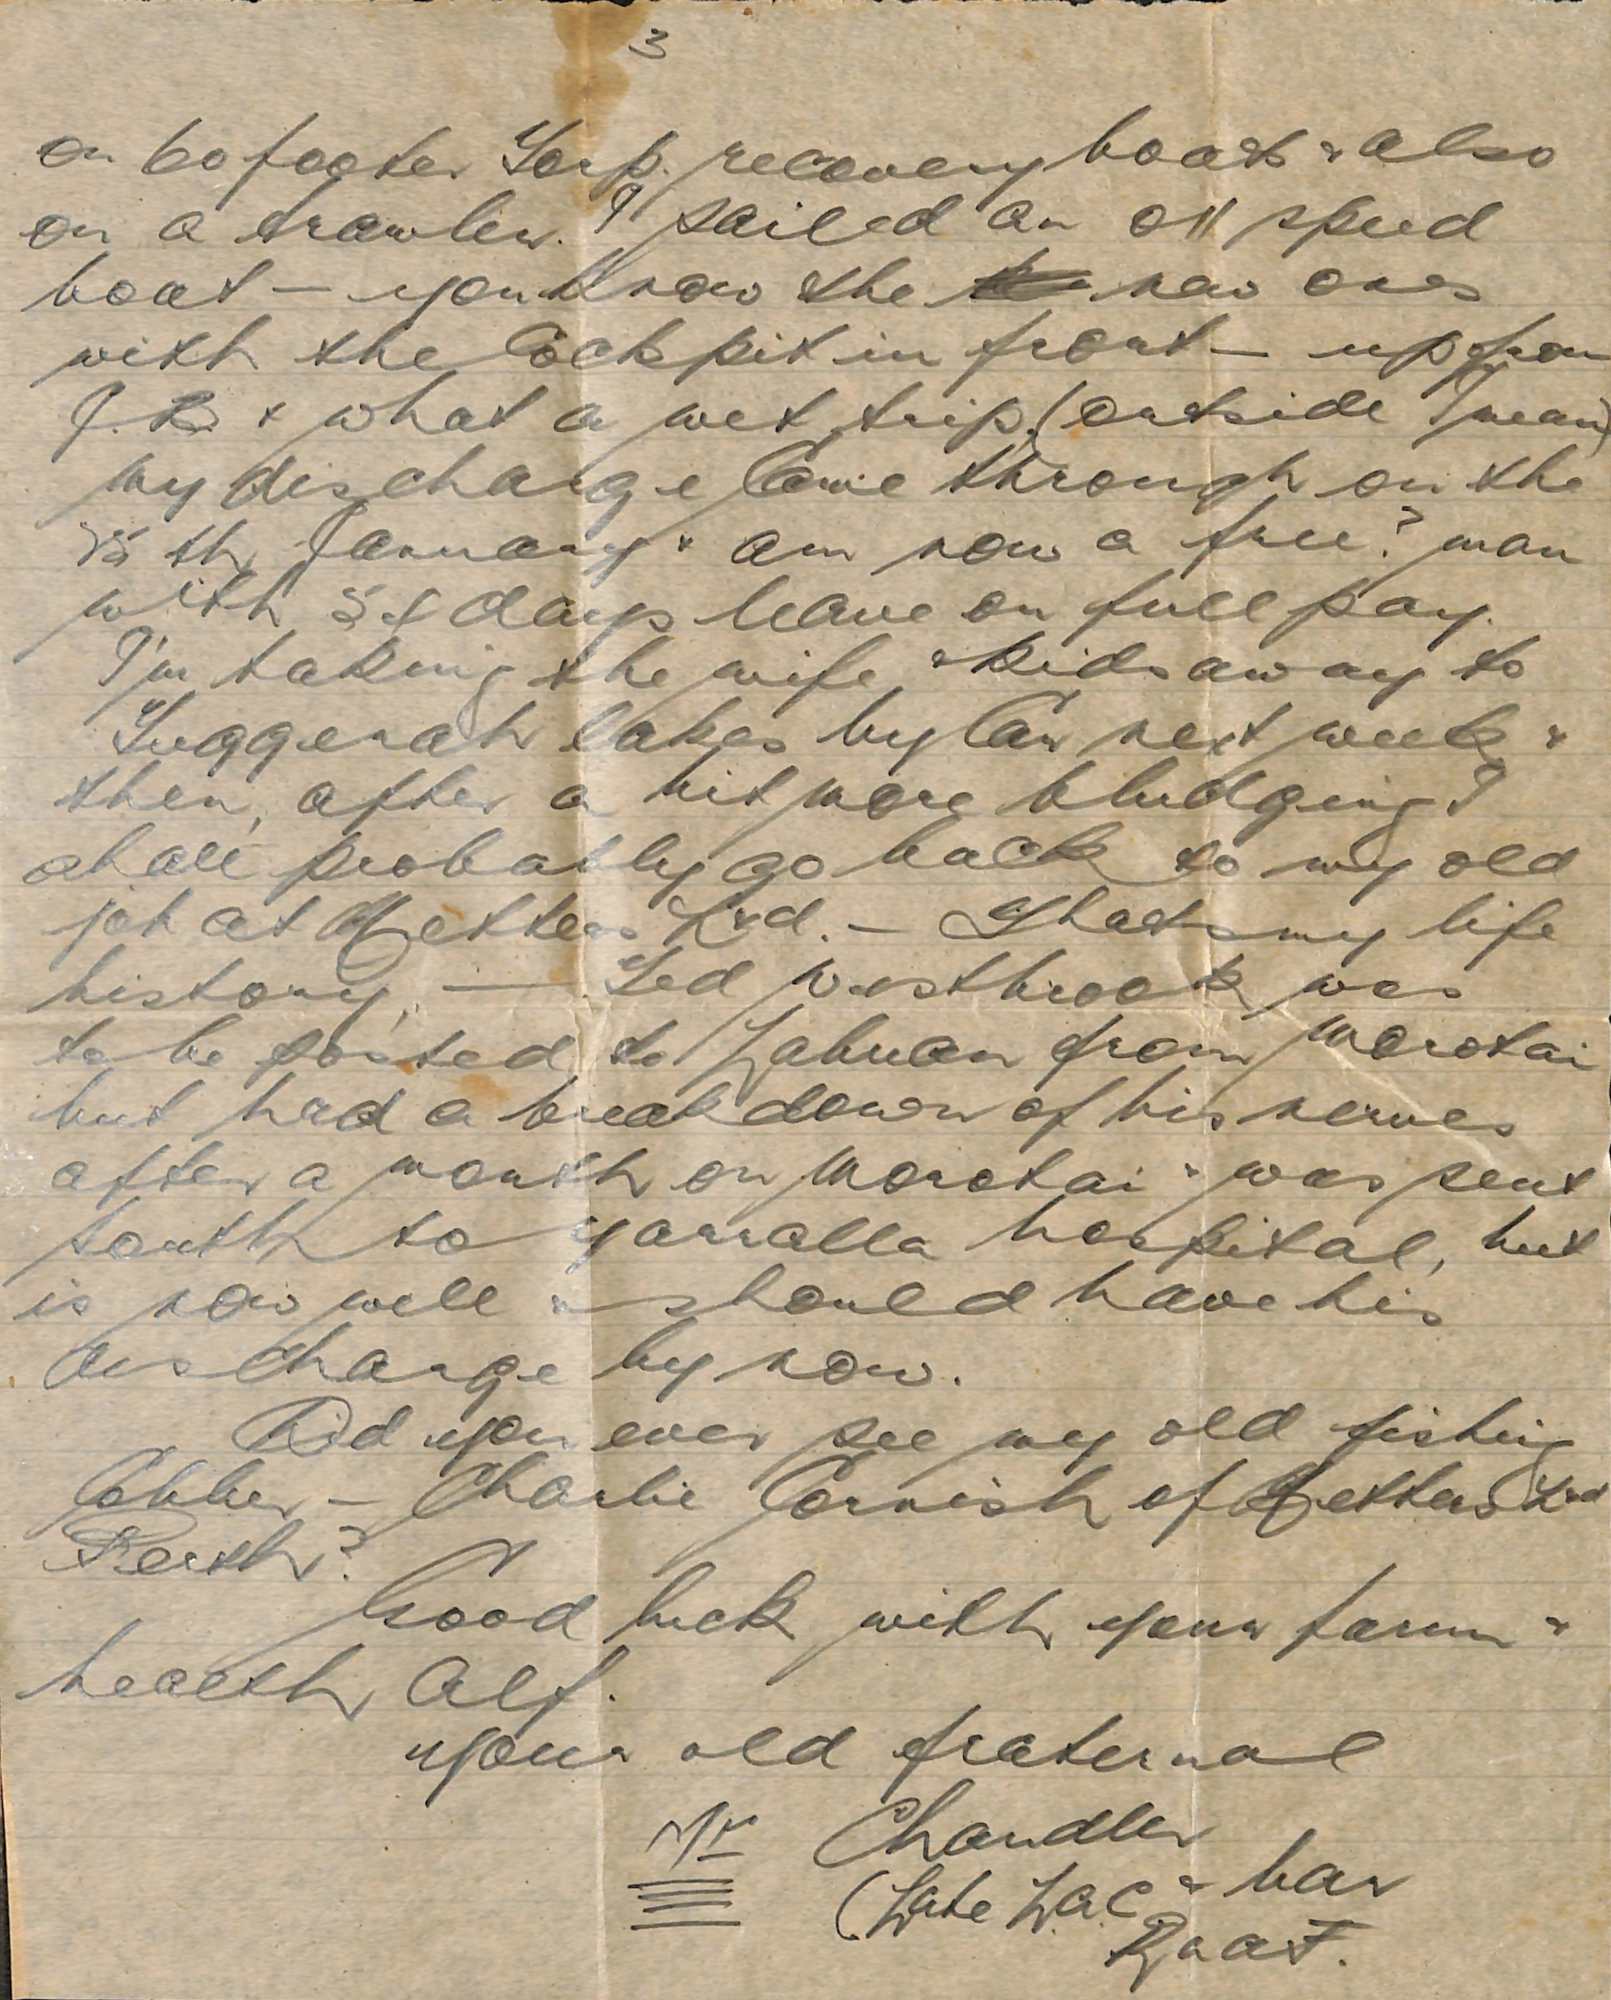 3
on 60 footer Torp. recovery boats & also
on a trawler. I sailed an 011 speed
boat - you know the new ones
with the Cockpit in front - up from
J.B. & what a wet trip (outside I mean)
my discharge Came through on the
25th January & am now a free? man
with 54 days leave on full pay.
I'm taking the wife & kids away to
Tuggerah lakes by Car next week &
then, after a bit more bludging I
shall probably go back to my old
job at Metters Ltd. - That's my life
history. - Ted Westbrook was
to be posted to Labuan from Morotai
but had a breakdown of his nerves
after a month on Morotai & was sent
south to Yarralla hospital, but
is now well & should have his
discharge by now.
Did you ever see my old fishing
Cobber - Charlie Cornish of Metters Ltd
Perth?
Good luck with your farm &
health Alf.
your old fraternal
Mr Chandler
(Late L.A.C. & bar
R.A.A.F.